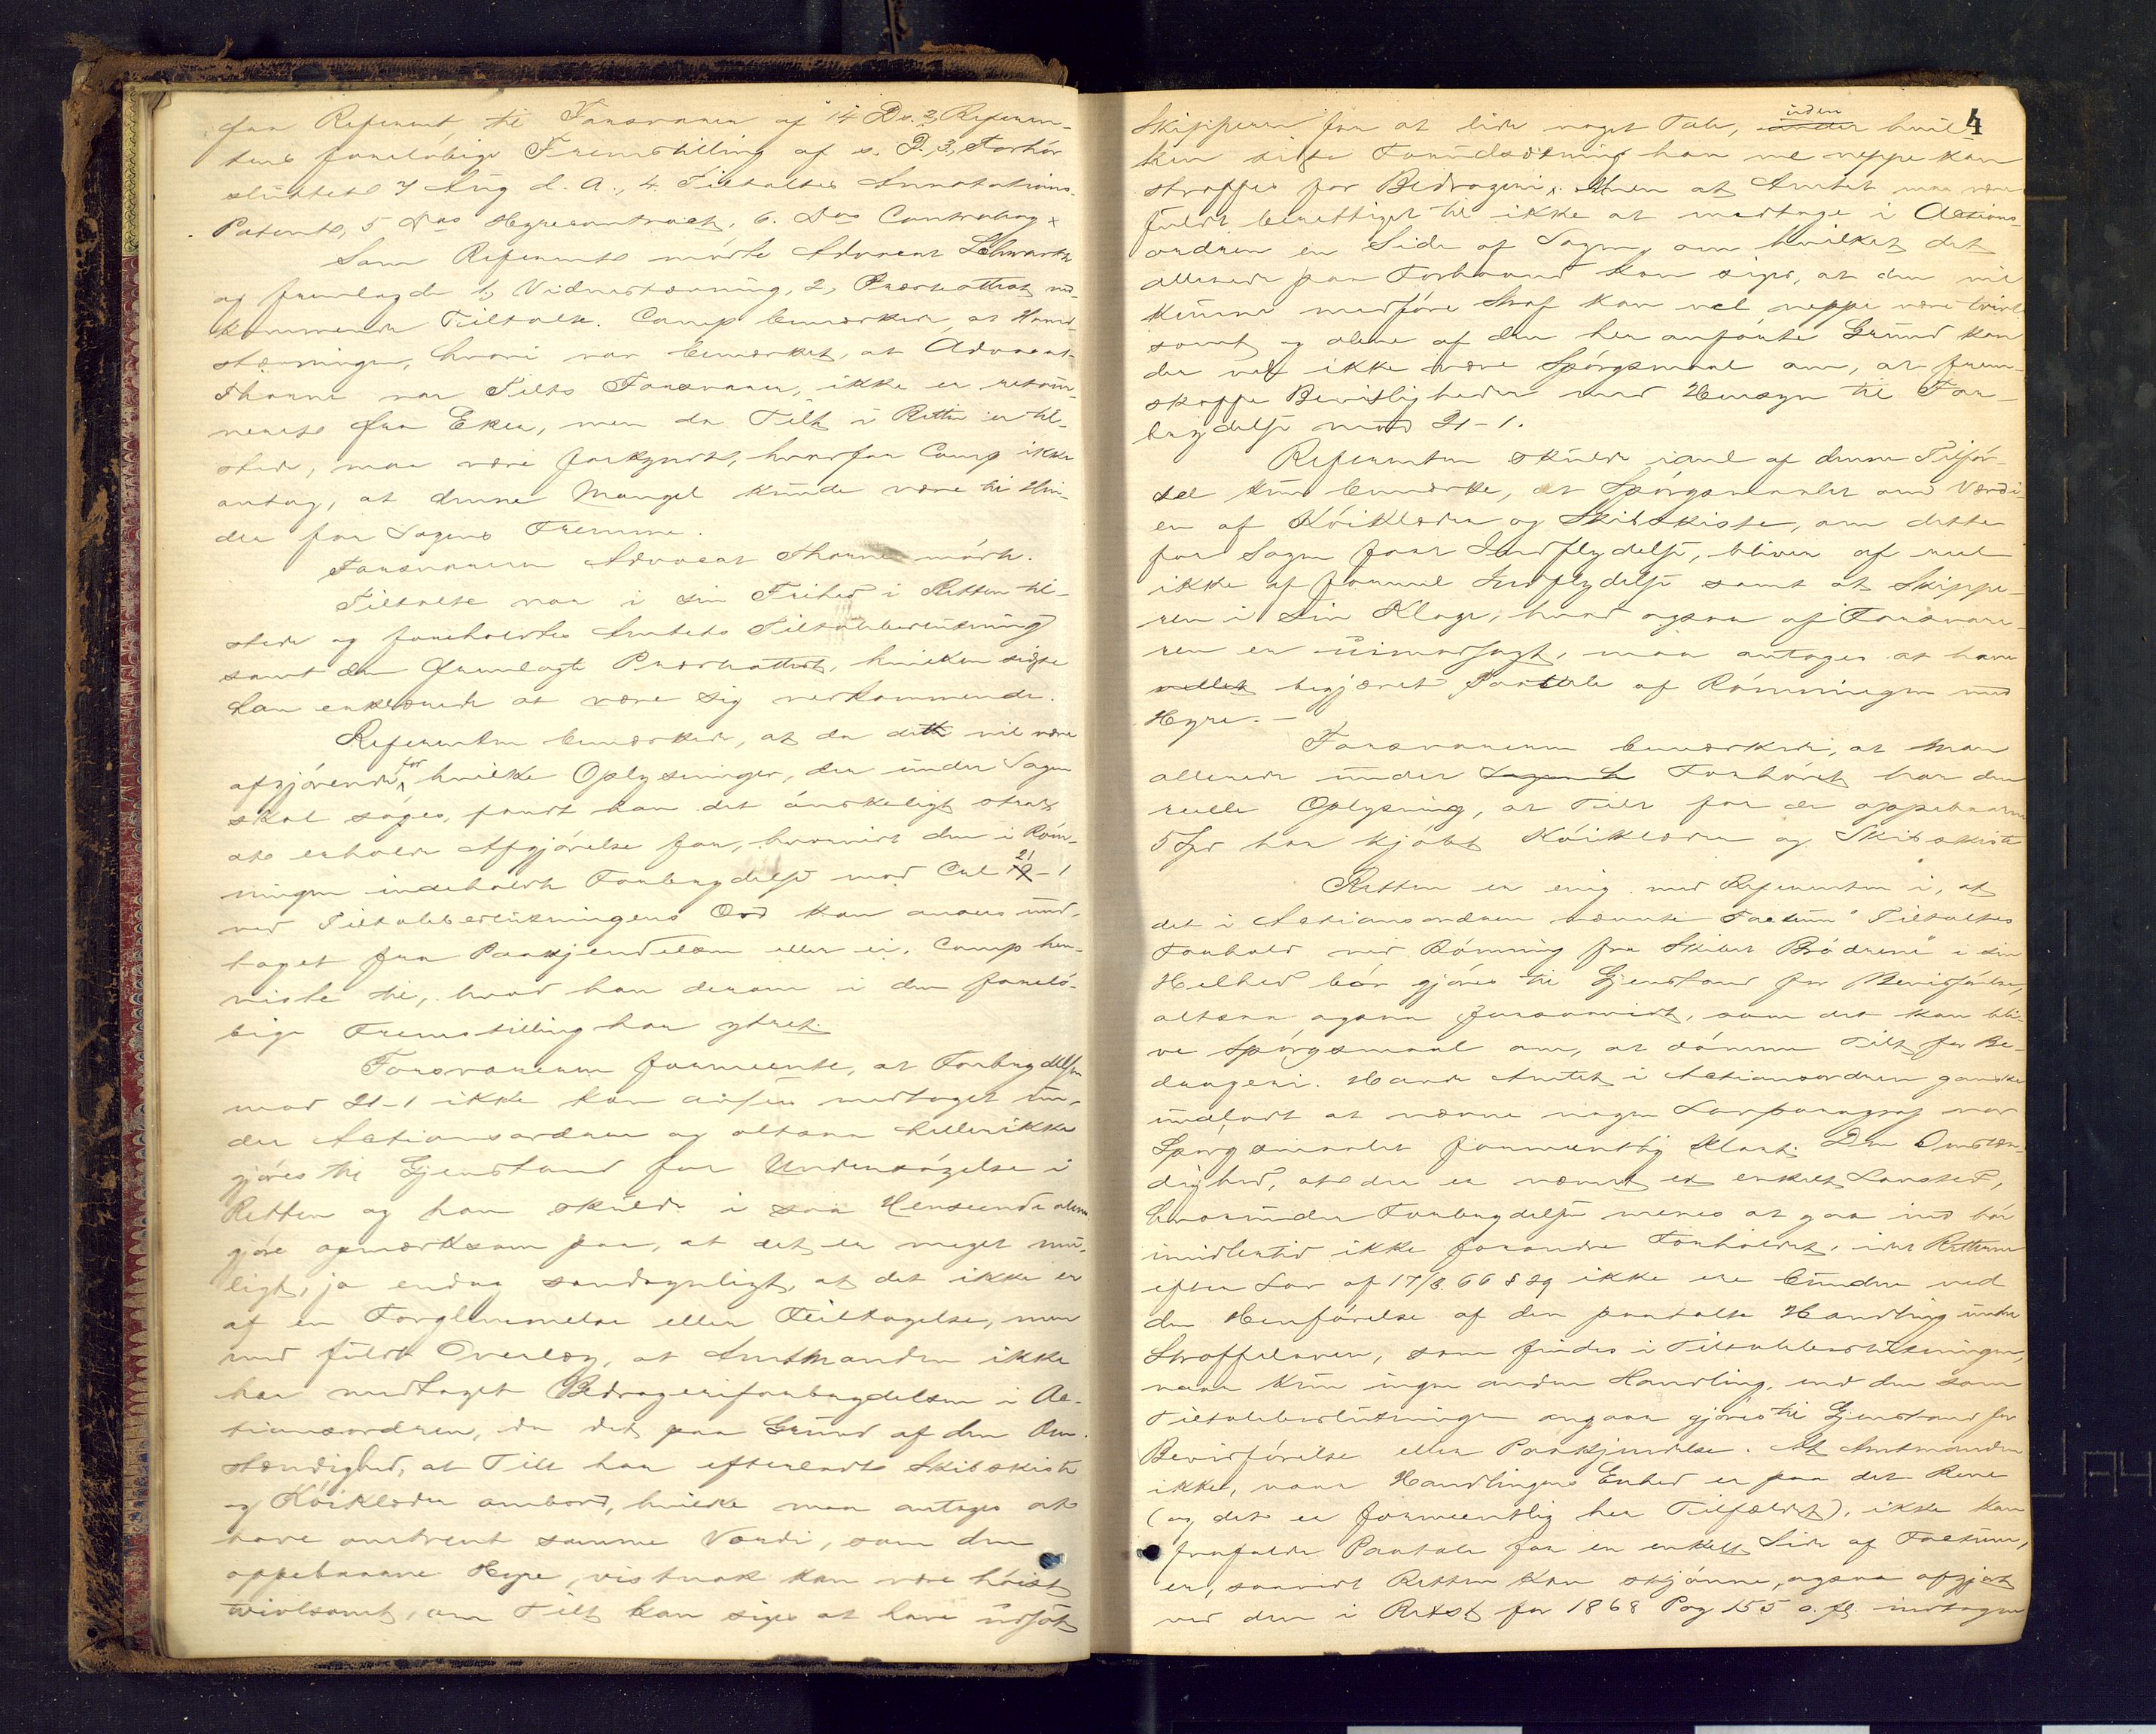 fra Referent til Forsvarer af 14 Ds. 2, Referen-
tens foreløbige Fremstilling af s. D. 3, Forhør
sluttet 7 Aug d. A., 4. Tiltaltes Annotations-
Patent, 5 Dos Hyrecontract, 6. Dos Contrabog x
Som Referent mødte Advocat Schwartz
og fremlagde 1, Vidnestævning, 2, Præsteattest ved-
kommende Tiltalte. Comp bemærkede, at Hoved-
stævningen, hvori var bemærket, at Advocat
Thorne var Tilts Forsvarer, ikke er retour-
neret fra Eker, men da Tilt i Retten er til-
stede, maa være forkyndt, hvorfor Comp ikke
antog, at denne Mangel kunde være til Hin-
der for Sagens Fremme.
Forsvareren Advocat Thorne mødte.
Tiltalte var i sin Frihed i Retten til-
stede og foreholdtes Amtets Tiltalebeslutning
samt den fremlagte Præsteattest, hvilken sidste
han erklærede at være sig vedkommende.
Referenten bemærkede, at da dette vil være
afgjørende for hvilke Oplysninger, der under Sagen
skal søges, fandt han det ønskeligt strax
at erholde Afgjørelse for, hvorvidt den i Røm-
ningen indeholdte Forbrydelse mod Crl 21-1
ved Tiltalebeslutningens Ord kan ansees und-
taget fra Paakjendelsen eller ei. Comp hen-
viste til, hvad han derom i den foreløb-
bige Fremstilling har ytret.
Forsvareren formeente, at Forbrydelsen
mod 21-1 ikke kan ansees medtaget un-
der Actionsordren og altsaa heller ikke
gjøres til Gjenstand for Undersøgelse i
Retten og han skulde i saa Henseende alene
gjøre opmærksom paa, at det er meget mu-
ligt, ja endog sandsynligt, at det ikke er
af en Forglemmelse eller Feiltagelse, men
med fuldt Overlæg, at Amtmanden ikke
har medtaget Bedrageriforbrydelsen i Ac-
tionsordren, da det paa Grund af den Om-
stændighed, at Tilt har efterladt Skibskiste
og Køiklæder ombord, hvilke maa antages at
have omtrent samme Værdi, som den
oppebaarne Hyre, vistnok kan være høist
tvivlsomt, om Tilt kan siges at have udsat
4
Skipperen for at lide noget Tab, uden hvil-
ken sidste Forudsætning han vel neppe kan
straffes for Bedrageri. Men at Amtet maa være
fuldt berettiget til ikke at medtage i Actions-
ordren en Side af Sagen, om hvilket det
allerede paa Forhaand kan siges, at den vil
kunne medføre Straf kan vel neppe være tvivl-
somt og alene af den her anførte Grund kan
der vel ikke være Spørgsmaal om, at frem-
skaffe Bevisligheder med Hensyn til For-
brydelse mod 21-1.
Referenten skulde i anl af denne Tilfør-
sel kun bemærke, at Spørgsmaalet om Værdi-
en af Køiklæder og Skibskiste, om dette
for Sagen faar Indflydelse, bliver af reel
ikke af formel Indflydelse samt at Skippe-
ren i sin Klage, hvad ogsaa af Forsvare-
ren er uimodsagt, maa antages at have
begjæret Paatale af Rømningen med
Hyre. -
Forsvareren bemærkede, at man
allerede under Forhøret har den
reelle Oplysning, at Tilt for de oppebaarne
5 Spd har kjøbt Køiklæder og Skibskiste
Retten er enig med Referenten i, at
det i Actionsordren nævnte Factum "Tiltaltes
Forhold ved Rømning fra Skibet Brødrene" i sin
Helhed bør gjøres til Gjenstand for Bevisførelse,
altsaa ogsaa forsaavidt, som det kan bli-
ve Spørgsmaal om, at dømme Tilt for Be-
drageri. Havde Amtet i Actionsordren ganske
undladt at nævne nogen Lovparagraf var
Spørgsmaalet formeentlig klart. Den Omstæn-
dighed, at der er nævnt et enkelt Lovsted,
hvorunder Forbrydelsen menes at gaa ind bør
imidlertid ikke forandre Forholdet, idet Retterne
efter Lov af 17/3 66 § 29 ikke ere bundne ved
den Henførelse af den paatalte Handling under
Straffeloven, som findes i Tiltalebeslutningen,
naar kun ingen anden Handling, end den som
Tiltalebeslutningen angaar gjøres til Gjenstand for
Bevisførelse eller Paakjendelse. At Amtmanden
ikke, naar Handlingens Enhed er paa det Rene
(og det er formeentlig her Tilfældet), ikke kan
frafalde Paatale for en enkelt Side af Factum,
er, saavidt Retten kan skjønne, ogsaa afgjort
ved den i Retst for 1868 Pag 155 o. fl. indtagne